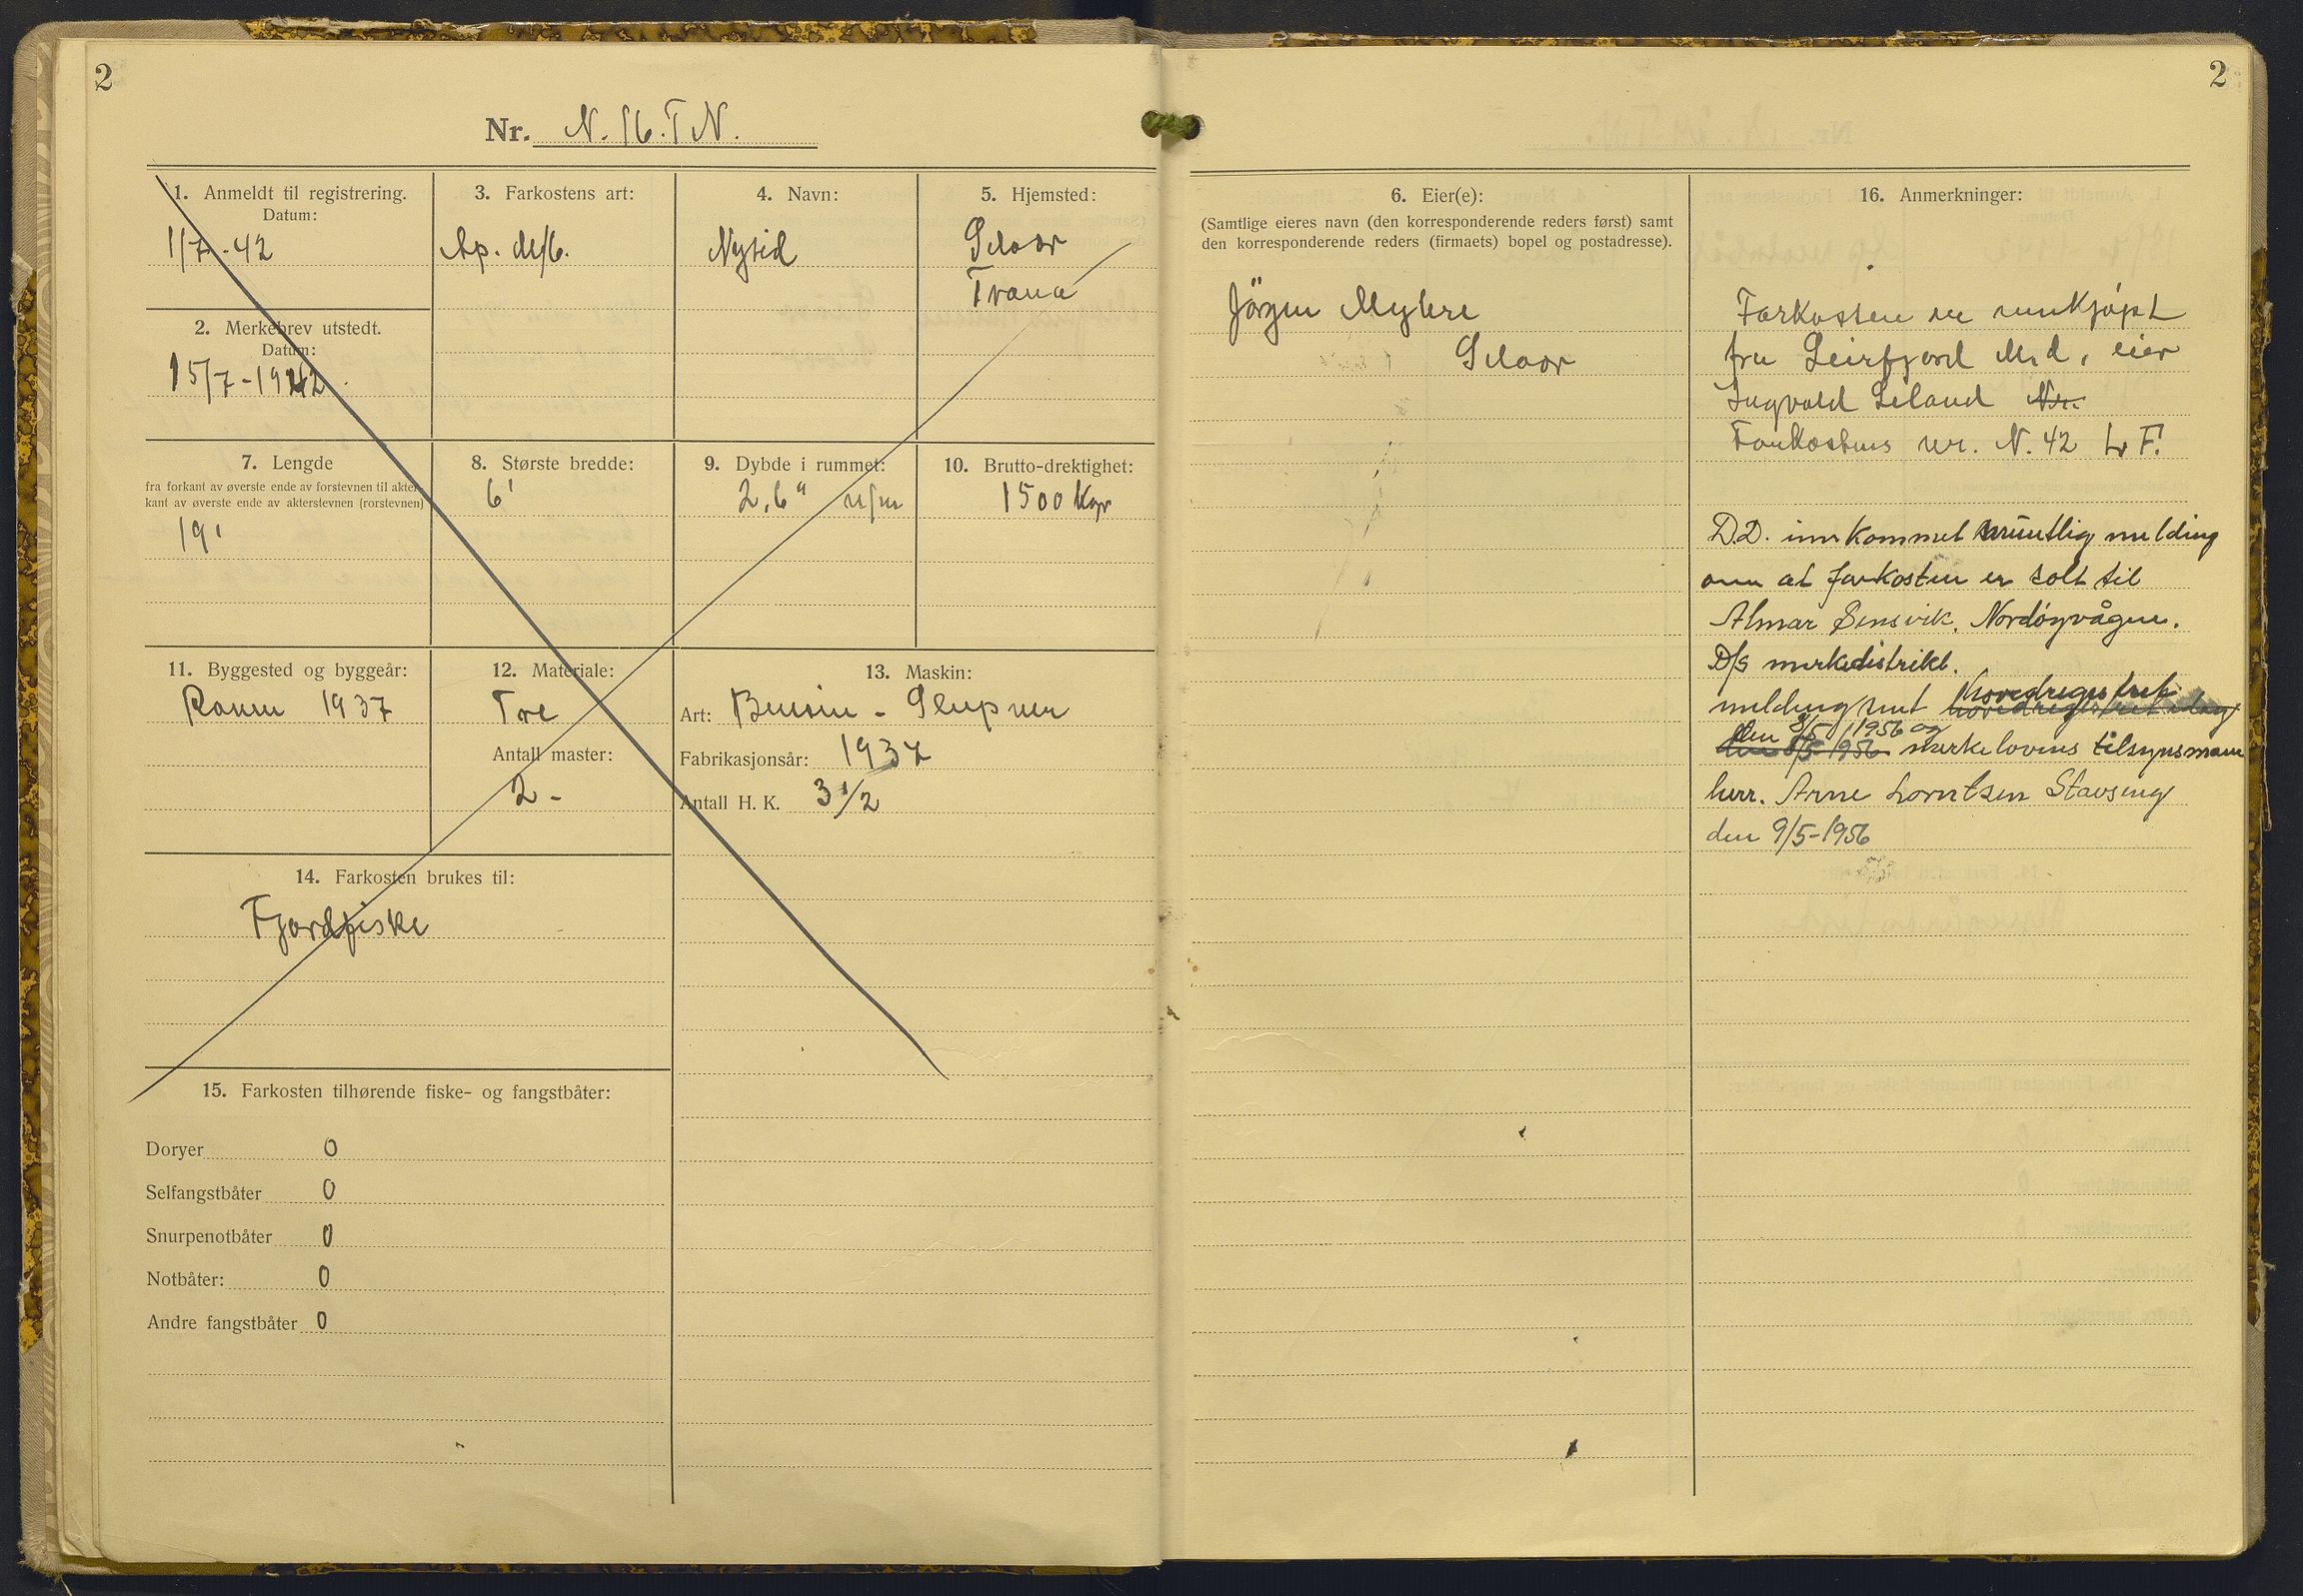 2
Nr. N. 16. T N.
1. Anmeldt til registrering.
Datum:
1/7 - 42
2. Merkebrev utstedt.
Datum:
15/7 - 1942
3. Farkostens art:
Åp. M/b.
4. Navn:
Nysid
5. Hjemsted:
Selvær
Træna
7. Lengde
fra forkant av øverste ende av forstevnen til akter-
kant av øverste ende av akterstevnen (rorstevnen)
19'
8. Største bredde:
6'
9. Dybde i rummet:
2,6"
10. Brutto-drektighet:
1500 Kgr
11. Byggested og byggeår:
Ranen 1937
12. Materiale:
Tre
Antall master:
2 -
13. Maskin:
Art: Bensin - Sleipner
Fabrikasjonsår: 1937
Antall H. K. 3 1/2
14. Farkosten brukes til:
Fjordfiske
15. Farkosten tilhørende fiske- og fangstbåter:
Doryer 0
Selfangstbåter 0
Snurpenotbåter 0
Notbåter: 0
Andre fangstbåter 0
2
6. Eier(e):
(Samtlige eieres navn (den korresponderende reders først) samt
den korresponderende reders (firmaets) bopel og postadresse).
Jörgen Myhre
Selvær
16. Anmerkninger:
Farkosten er innkjøpt
fra Leirfjord M.d, eier
Ingvald Leland Nr.
Farkostens nr. N. 42 L F.
D.D. innkommet muntlig melding
om at farkosten er solt til
Almar Sensvik, Nordøyvågen.
D/s merkedistrikt.
hovedregistret
melding sent hovedregistret idag
den 8/5 1956 og
den 8/5 1956 merkelovens tilsynsmann
herr. Arne Lorntsen Stavseng
den 9/5-1956